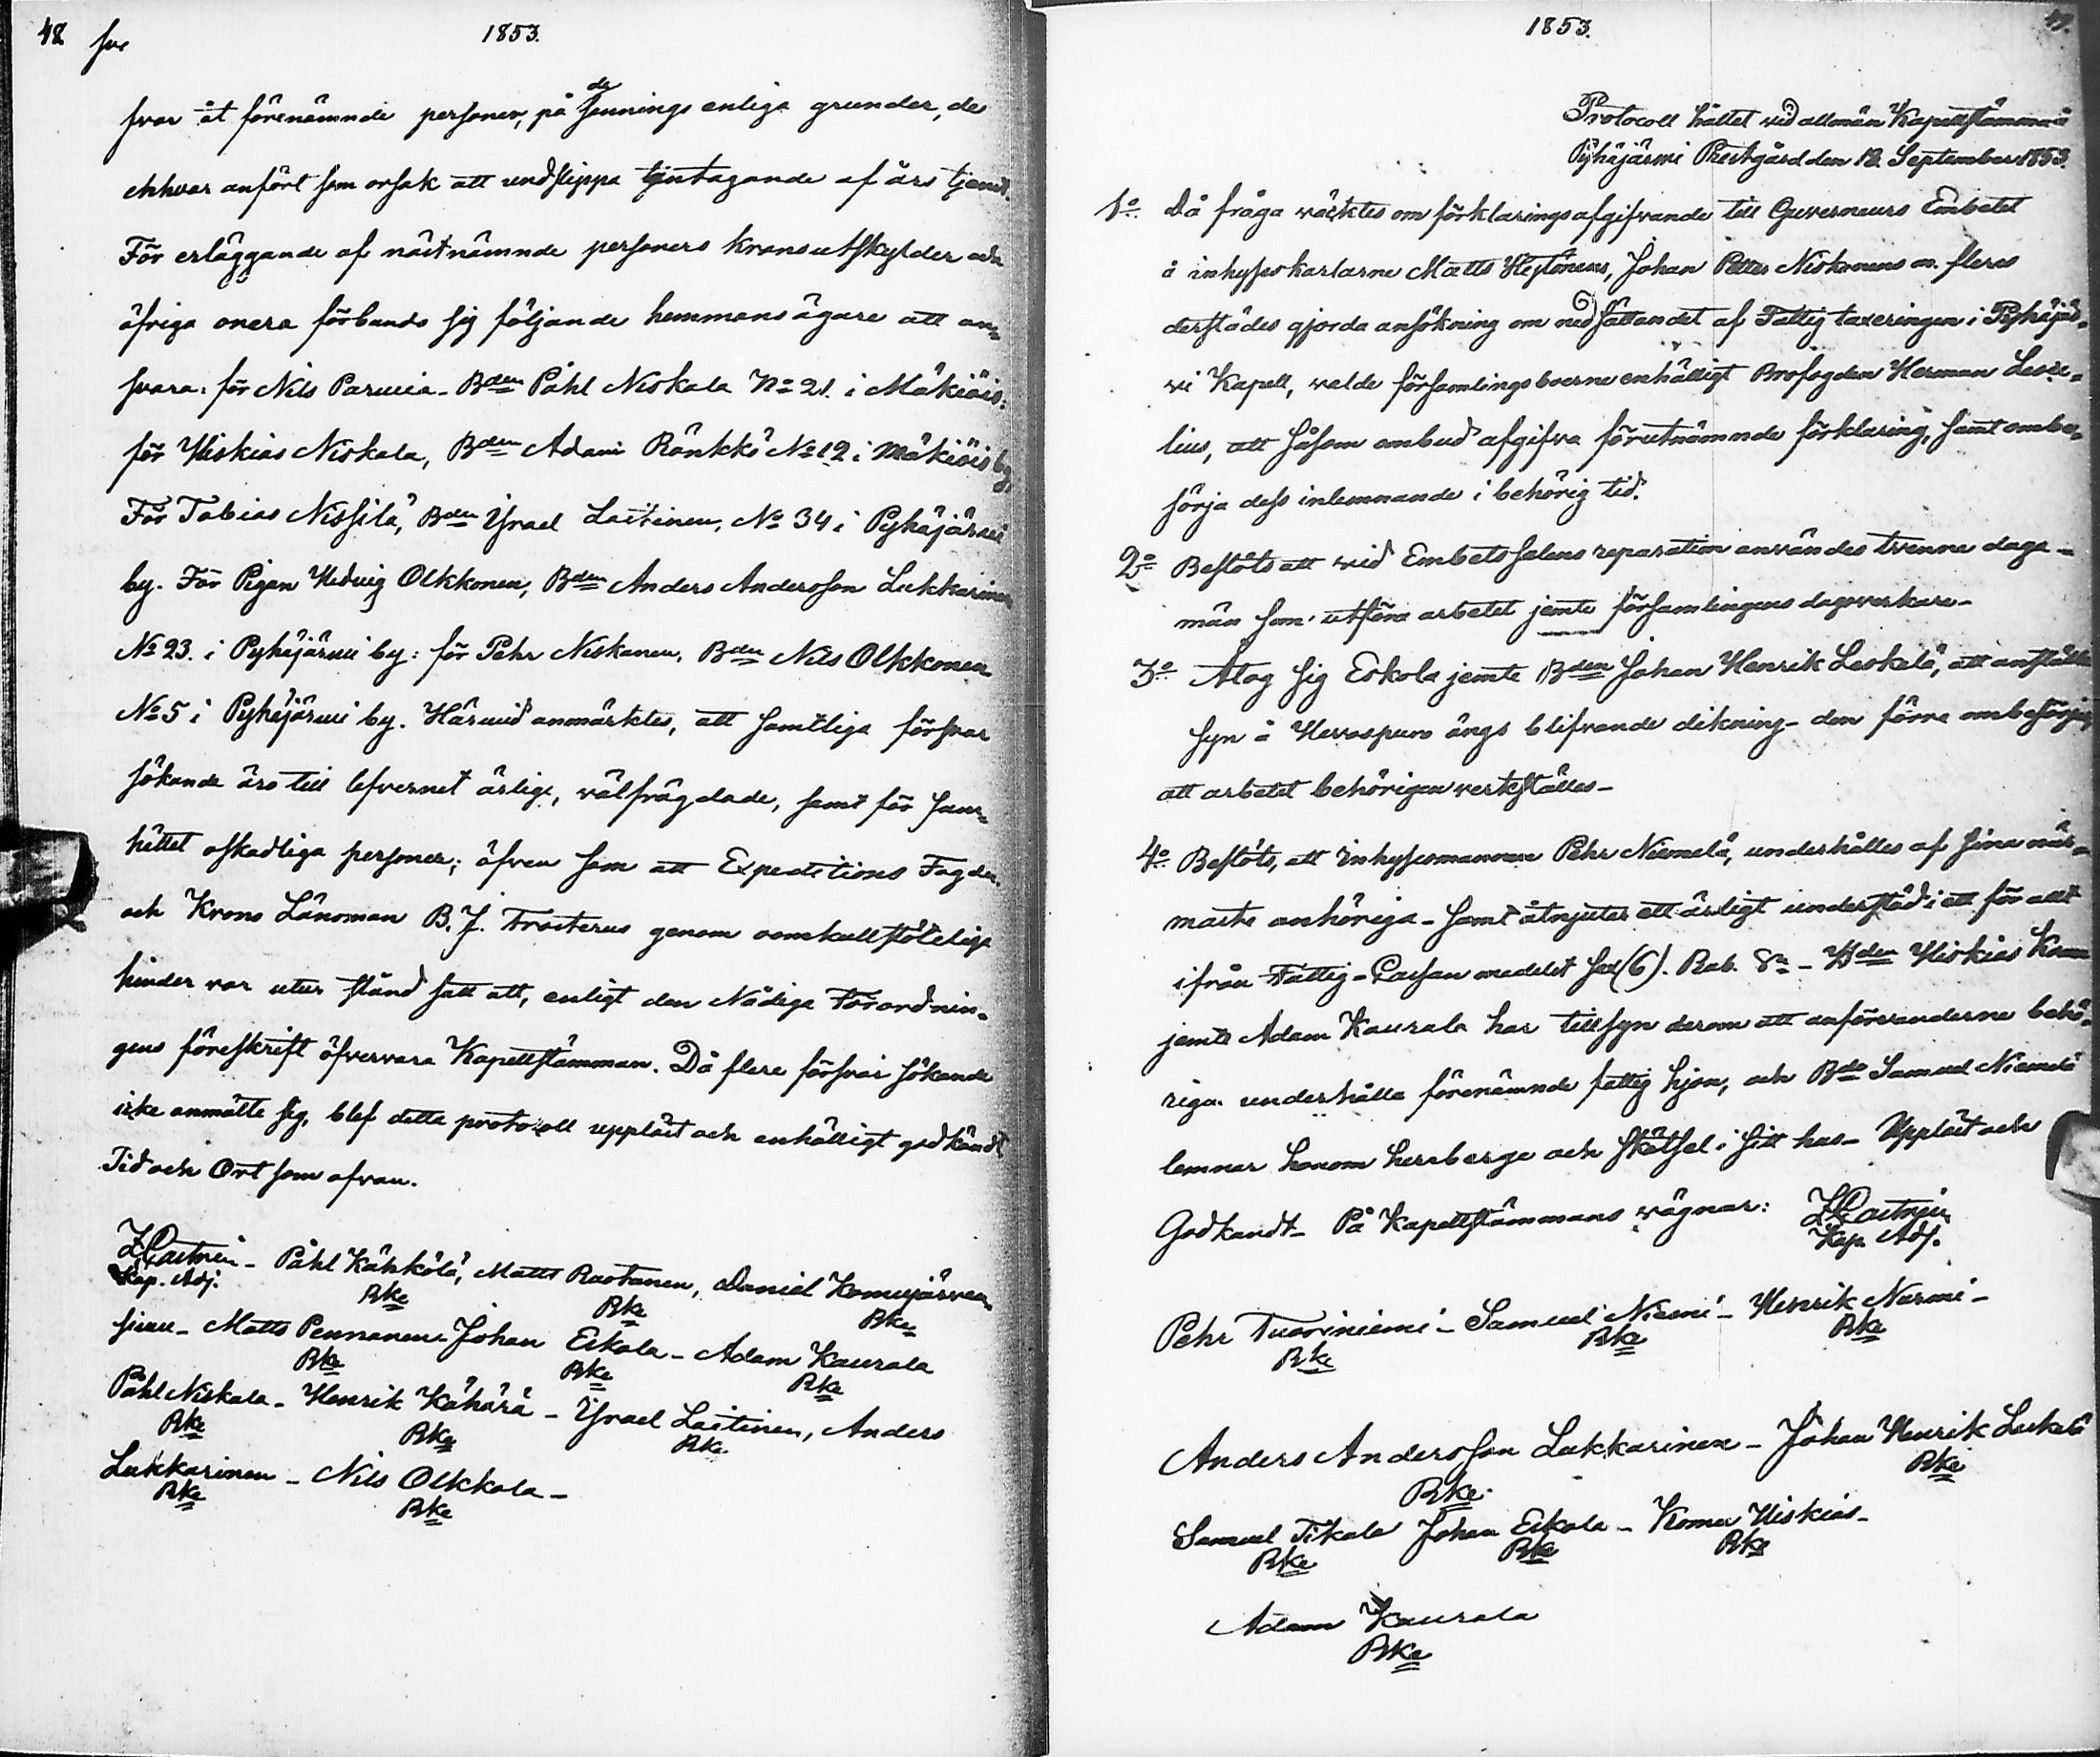 48 för 1853.
svar åt förenämnde personer, på de sannings enliga grunder, de
ehhvar anfört som orsak att undslippa tjentagande af års tjenst.
För erläggande af nästnämnde personers kronoutskylder och
öfriga onera förbundo sig följande hemmansägare att an=
svara: för Nils Parmia - Bden Påhl Niskala No 21. i Mäkiöis:
för Hiskias Niskala, Bden Adam Rönkkö No 12 i Mäkiöis by,
För Tobias Nissilä, Bden Israel Laitinen, No 34 i Pyhäjärvi
by. För Pigan Hedvig Olkkonen, Bden Anders Andersson Lukkarinen
No 23. i Pyhäjärvi by: för Pehr Niskanen, Bden Nils Olkkonen
No 5 i Pyhäjärvi by. Härvid anmärktes, att samtliga försvar
sökande äro till lefvernet ärlige, välfrägdade, samt för sam=
hället oskadliga personer; äfven som att Expeditions Fogden
och Krono Länsman B. J. Frosterus genom oomkullstötelige
hinder var utur stånd satt att, enligt den Nådiga Förordnin=
gens föreskrift öfvervara Kapellstämman. Då flere försvar sökande
icke anmälte sig, blef detta protocoll uppläst och enhälligt godkändt
Tid och Ort som ofvan.
Z Castrén - Påhl Kähkölä, Matts Ruotanen, Daniel Komujärven
Kap. Adj. Bke Bke Bke
sivu - Matts Pennanen - Johan Eskola - Adam Kaurala
Bke Bke Bke
Påhl Niskala - Henrik Kähärä - Israel Laitinen, Anders
Bke Bke Bke
Lukkarinen - Nils Olkkola -
Bke Bke
1853. 49.
Protocoll hållet vid allmän Kapellstämma å
Pyhäjärvi Prestgård den 18 September 1853.
1o. Då fråga väcktes om förklarings afgifvande till Guverneurs Embetet
å inhyseskarlarne Matts Heytönens, Johan Petter Niskanens m. fleres
derstädes gjorda ansökning om nedsättandet af Fattig taxeringen i Pyhäjär=
vi Kapell, valde församlingsboerne enhälligt Brofogden Herman
lius, att såsom ombud afgifva förutnämnde förklaring, samt ombe=
sörja dess inlemnande i behörig tid.
2o Beslöts att vid Embets salens reparation användes tvenne dags=
män som utföra arbetet jemte församlingens dagsverkare -
3o Åtog sig Eskola jemte Bden Johan Henrik Leskelä, att anställa
syn å Hervaspuro ängs blifvande dikning - den förre ombesörjer
att arbetet behörigen verkställes -
4o Beslöts, att Inhysesmannen Pehr Niemelä, underhålles af sina när=
maste anhöriga - samt åtnjuter ett årligt understöd i ett för allt
ifrån Fattig-Cassan medelst sex (6). Rub. Sr - Bden Hiskias Komu
jemte Adam Kaurala har tillsyn derom att anförvanderne behö=
rigen underhålla förenämnde fattig hjon, och Bde Samuel Niemelä
lemnar honom herrberge och skötsel i sitt hus - Uppläst och
Godkändt - På Kapellstämmans vägnar: Z Castrén
Kap. Adj.
Pehr Tuoriniemi - Samuel Niemi - Henrik Nurmi -
Bke Bke Bke
Anders Andersson Lukkarinen - Johan Henrik Leskelä
Bke Bke
Samuel Tikala Johan Eskola - Komu Hiskias -
Bke Bke Bke
Adam Kaurala
Bke